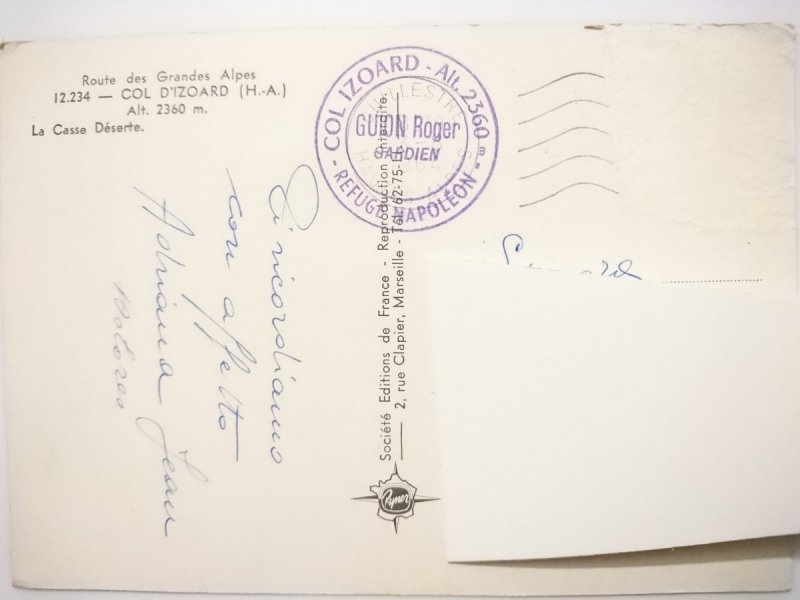 Route des Grandes Alpes
12.234 — COL D'IZOARD (H.-A.)
Alt. 2360 m.
La Casse Déserte.
COL IZOARD - Alt. 2360 m -
GUION Roger
GARDIEN
REFUGE NAPOLÉON -
GUILLESTRE
HAUTES ALPES
Ti ricordiamo
con affetto
Adriana Jean
Dolores
Société Editions de France - Reproduction Interdite.
2, rue Clapier, Marseille - Tél. 62-75-
Rymer